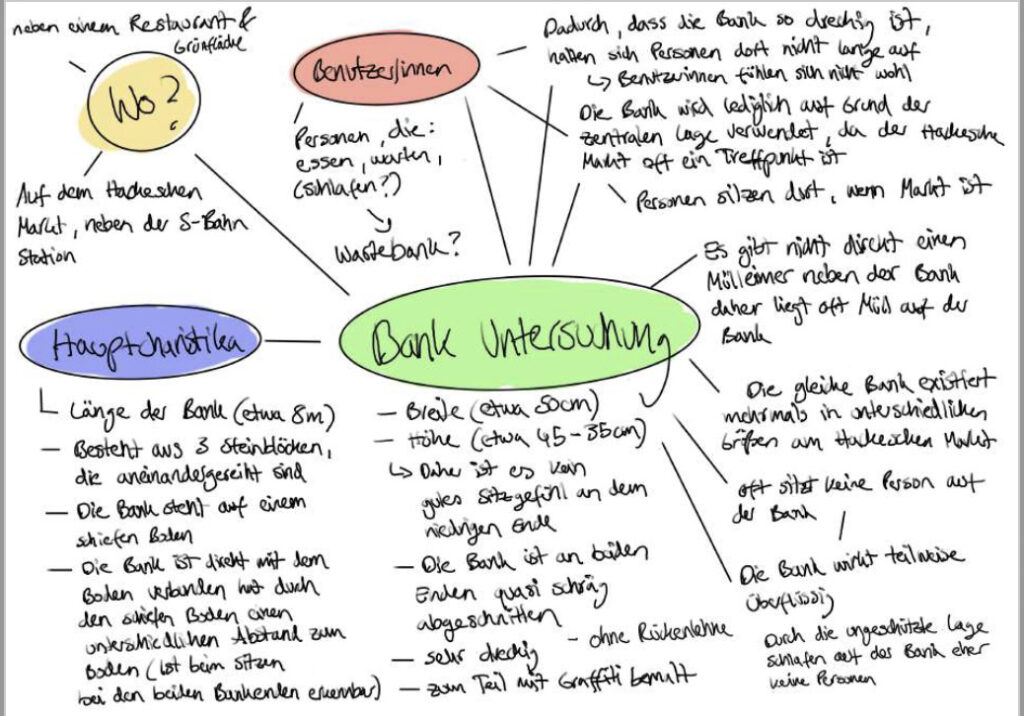 neben einem Restaurant &
Grünfläche
Wo?
Auf dem Hackeschen
Markt, neben der S-Bahn
Station
Benutzer/innen
Personen, die:
essen, warten,
(schlafen?)
Wartebank?
Dadurch, dass die Bank so dreckig ist,
halten sich Personen dort nicht lange auf
↳ Benutzerinnen fühlen sich nicht wohl
Die Bank wird lediglich auf Grund der
zentralen Lage verwendet, da der Hackesche
Markt oft ein Treffpunkt ist
Personen sitzen dort, wenn Markt ist
Bank Untersuchung
Es gibt nicht direkt einen
Mülleimer neben der Bank
daher liegt oft Müll auf der
Bank
Die gleiche Bank existiert
mehrmals in unterschiedlichen
Größen am Hackeschen Markt
oft sitzt keine Person auf
der Bank
Die Bank wirkt teilweise
überflüssig
Durch die ungeschützte Lage
schlafen auf das Bank eher
keine Personen
Hauptchristika
Länge der Bank (etwa 8m)
— Besteht aus 3 Steinblöcken,
die aneinandergereiht sind
— Die Bank steht auf einem
schiefen Boden
— Die Bank ist direkt mit dem
Boden verbunden hat durch
den schiefen Boden einen
unterschiedlichen Abstand zum
Boden (ist beim sitzen
bei den beiden Bankenden erkennbar)
— Breite (etwa 50cm)
— Höhe (etwa 45-35cm)
↳ Daher ist es kein
gutes Sitzgefühl an dem
niedrigen Ende
— Die Bank ist an beiden
Enden quasi schräg
abgeschnitten
- ohne Rückenlehne
— sehr dreckig
— zum Teil mit Graffiti bemalt